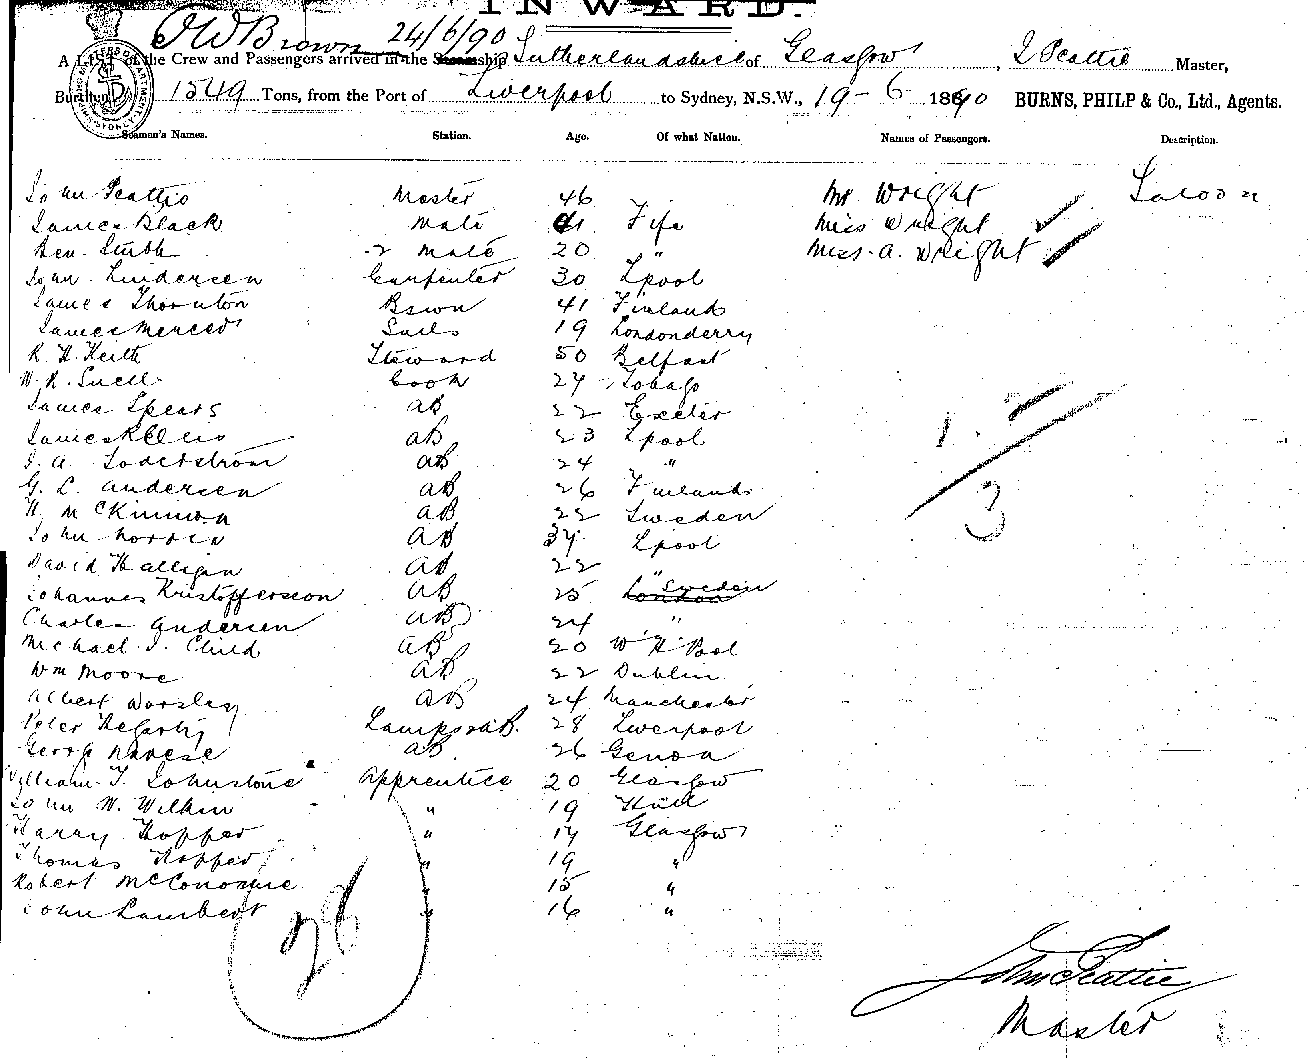 INWARD.
JWBrown 24/6/90
A LIST of the Crew and Passengers arrived in the Steamship Sutherlandshire of Glasgow, J Peattie Master,
Burthen 1549 Tons, from the Port of Liverpool to Sydney, N.S.W., 19-6 1890 BURNS, PHILP & Co., Ltd., Agents.
Seaman's Names. Station. Age. Of what Nation. Names of Passengers. Description.
John Peattie Master 46 Mr Wright Saloon
James Black Mate 41 Fife Miss Wright
Ben. Smith 2 Mate 20 " Miss. A. Wright
John Lindersen Carpenter 30 Lpool
James Thornton Bswn 41 Finland
James Mercer Sails 19 Londonderry
R. H. Keith Steward 50 Belfast
W. R. Snell Cook 24 Tobago
James Spears AB 22 Exeter
James AB 23 Lpool
J. A. Soderstrom AB 24 "
G. L. Andersen AB 26 Finland
H. McKinnon AB 22 Sweden
John Norris AB 34 Lpool
David Halligan AB 22 "
Johannes Kristofferseon AB 25 London Sweden
Charles Andersen AB 24 "
Michael J. Child AB 20 W H Pool
Wm Moore AB 22 Dublin
Albert Worsley AB 24 Manchester
Peter Hegarty Lamps & AB. 28 Liverpool
George AB 26 Genoa
William T. Johnstone Apprentice 20 Glasgow
John W. Wilkin " 19 Hull
Harry Hopper " 17 Glasgow
Thomas Hopper " 19 "
Robert McConochie " 15 "
John Lambert " 16 "
3
28
John Peattie
Master